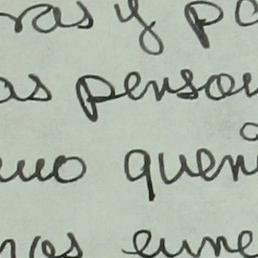 ras y po
as person
uo quen
nos eune